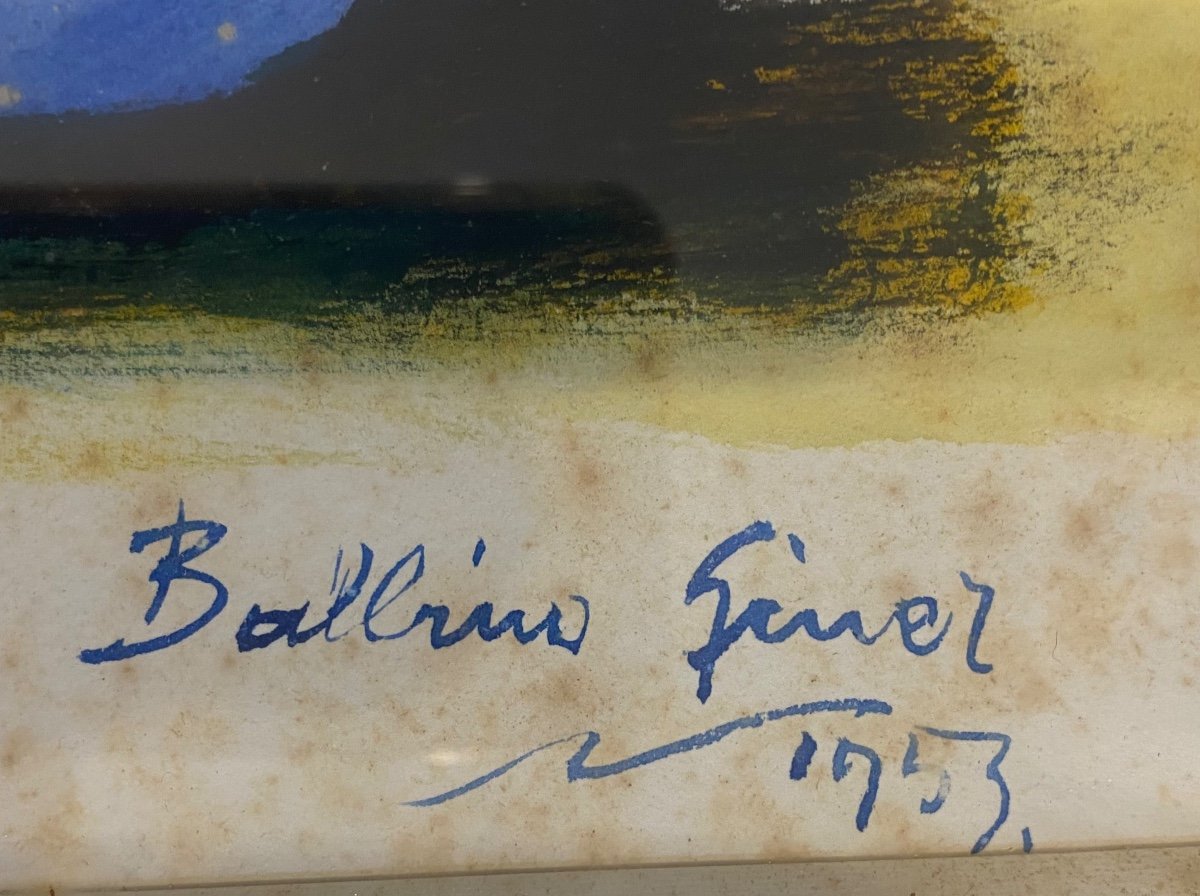 Balbino Giner
1953.